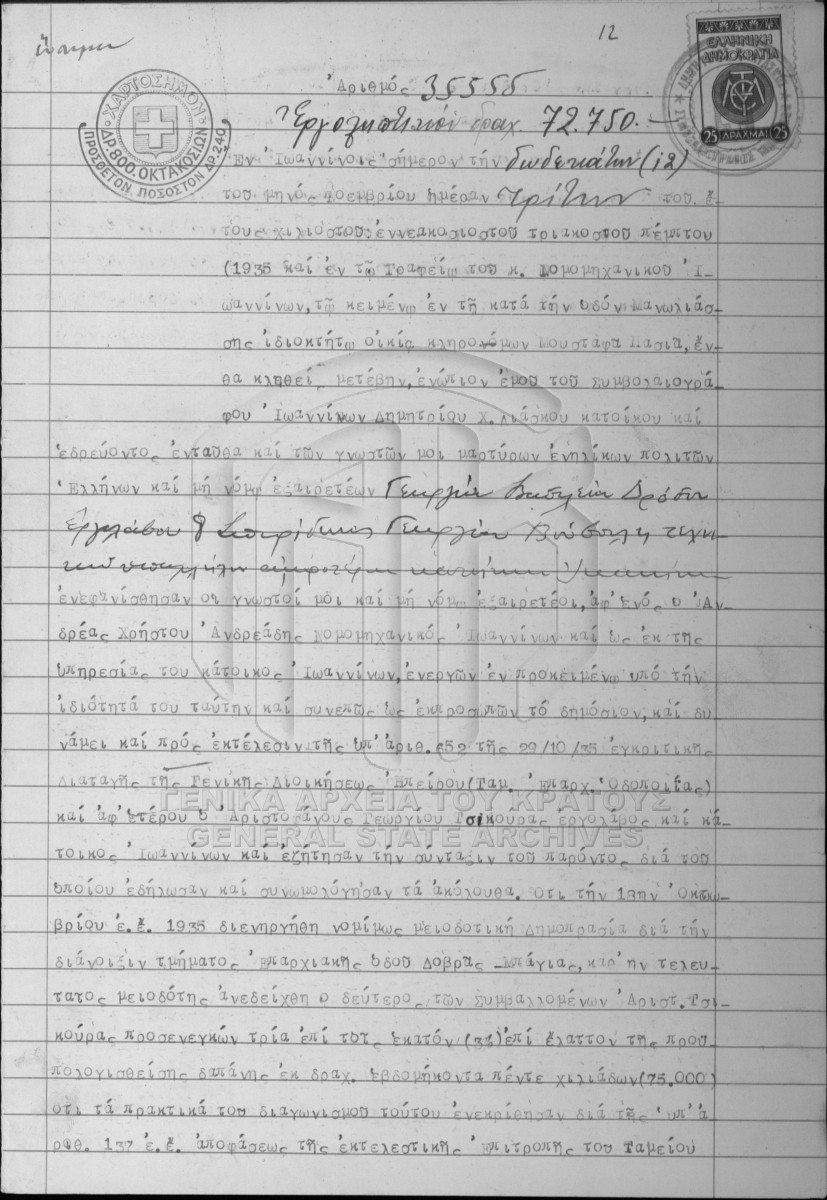 12
ΕΛΛΗΝΙΚΗ
ΔΗΜΟΚΡΑΤΙΑ
25 ΔΡΑΧΜΑΙ 25
ΧΑΡΤΟΣΗΜΟΝ
ΔΡ. 800. ΟΚΤΑΚΟΣΙΩΝ
ΠΡΟΣΘΕΤΟΝ ΠΟΣΟΣΤΟΝ ΔΡ. 240
Ἀριθμός 36555
Ἐργοληπτικόν δραχ. 72.750.—
Ἐν Ἰωαννίνοις σήμερον τήν δωδεκάτην (12)
του μηνός Νοεμβρίου ἡμέραν Τρίτην του ἔ-
τους χιλιοστου ἐννεακοσιοστου τριακοστου πέμπτου
(1935 καί ἐν τῷ Γραφείῳ του κ. Νομομηχανικου Ἰ-
ωαννίνων, τῷ κειμένῳ ἐν τῇ κατά τήν ὁδόν Μανωλιάσ-
σης ἰδιοκτήτῳ οἰκίᾳ κληρονόμων Μουσταφα Πασια, ἔν-
θα κληθείς μετέβην, ἐνώπιον ἐμου του Συμβολαιογρά-
φου Ἰωαννίνων Δημητρίου Χ. Λιάσκου κατοίκου καί
ἑδρεύοντος ἐνταυθα καί τῶν γνωστῶν μοι μαρτύρων ἐνηλίκων πολιτῶν
Ἑλλήνων καί μή νόμῳ ἐξαιρετέων Γεωργίου Βασιλείου Δρόσου
ἐργολάβου & Σπυρίδωνος Γεωργίου
ἐνεφανίσθησαν οι γνωστοί μοι καί μή νόμῳ ἐξαιρετέοι, ἀφ'ἑνός ὁ Ἀν-
δρέας Χρήστου Ἀνδρεάδης Νομομηχανικός Ἰωαννίνων καί ὡς ἐκ τῆς
ὑπηρεσίας του κάτοικος Ἰωαννίνων, ἐνεργῶν ἐν προκειμένῳ ὑπό τήν
ἰδιότητά του ταύτην καί συνεπῶς ὡς ἐκπροσωπῶν τό δημόσιον, καί δυ
νάμει καί πρός ἐκτέλεσιν τῆς ὑπ'ἀριθ. 652 τῆς 29/10/35 ἐγκριτικῆς
Διαταγῆς τῆς Γενικῆς Διοικήσεως Ἠπείρου (Ταμ. Ἐπαρχ. Ὁδοποιΐας)
ΓΕΝΙΚΑ ΑΡΧΕΙΑ ΤΟΥ ΚΡΑΤΟΥΣ
καί ἀφ'ἑτέρου ὁ Ἀριστοφάνους Γεωργίου Τσίκουρας εργολάβος καί κά-
GENERAL STATE ARCHIVES
τοικος Ἰωαννίνων καί ἐζήτησαν τήν σύνταξιν του παρόντος διά του
ὁποίου ἐδήλωσαν καί συνωμολόγησαν τά ἀκόλουθα. Οτι τήν 13ην Ὀκτω-
βρίου ἐ.ἔ. 1935 διενηργήθη νομίμως μειοδοτική Δημοπρασία διά τήν
διάνοιξιν τμήματος Ἐπαρχιακῆς ὁδου Δόβρας -Μπάγιας, καθ'ην τελευ-
τατος μειοδότης ἀνεδείχθη ο δεύτερος τῶν Συμβαλλομένων Ἀριστ. Τσι-
κούρας προσενεγκών τρία ἐπί τοις ἑκατόν (3%) ἐπί ἔλαττον τῆς πρου-
πολογισθείσης δαπάνης ἐκ δραχ. ἑβδομήκοντα πέντε χιλιάδων (75.000)
οτι τά πρακτικά του διαγωνισμου τούτου ἐνεκρίθησαν διά τῆς ὑπ'ἀ
ριθ. 137 ἐ.ἔ. ἀποφάσεως τῆς ἐκτελεστικῆς Ἐπιτροπῆς του Ταμείου